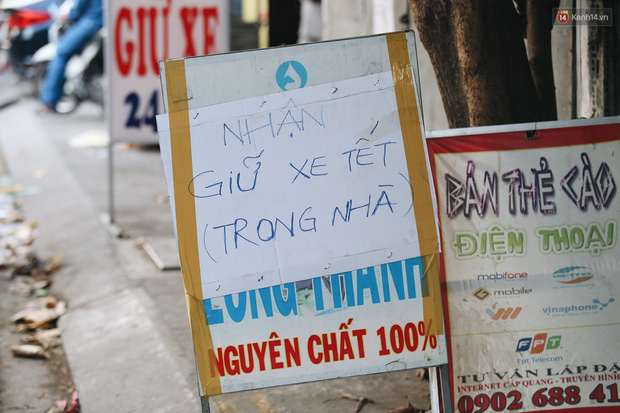 14 Kenh14.vn
GIỮ XE
24
NHẬN
GIỮ XE TẾT
(TRONG NHÀ)
LONG THÀNH
NGUYÊN CHẤT 100%
BÁN THẺ CÀO
ĐIỆN THOẠI
mobifone
VIETTEL
mobile
vinaphone
FPT
FPT Telecom
TƯ VẤN LẮP ĐẶ
INTERNET CÁP QUANG - TRUYỀN HÌNH
0902 688 41